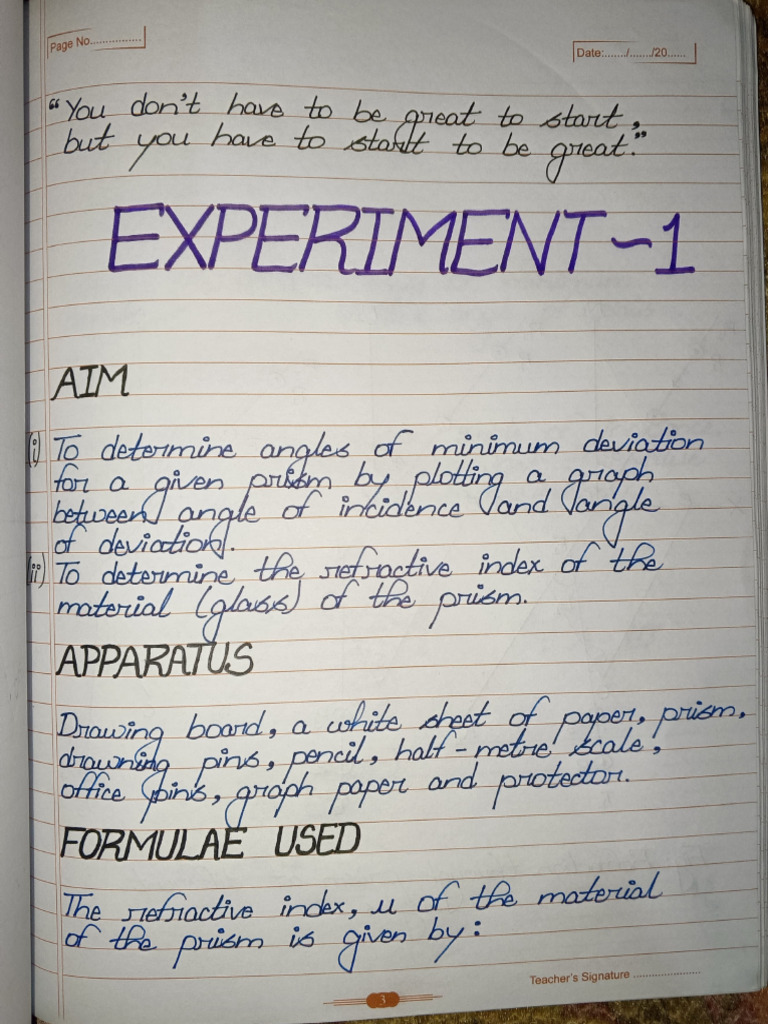 Page No...............
Date:......./......./20......
“You don't have to be great to start,
but you have to start to be great.”
EXPERIMENT-1
AIM
(i) To determine angles of minimum deviation
for a given prism by plotting a graph
between angle of incidence and angle
of deviation.
(ii) To determine the refractive index of the
material (glass) of the prism.
APPARATUS
Drawing board, a white sheet of paper, prism,
drawning pins, pencil, half-metre scale,
office pins, graph paper and protector.
FORMULAE USED
The refractive index, μ of the material
of the prism is given by:
Teacher's Signature ....................
3